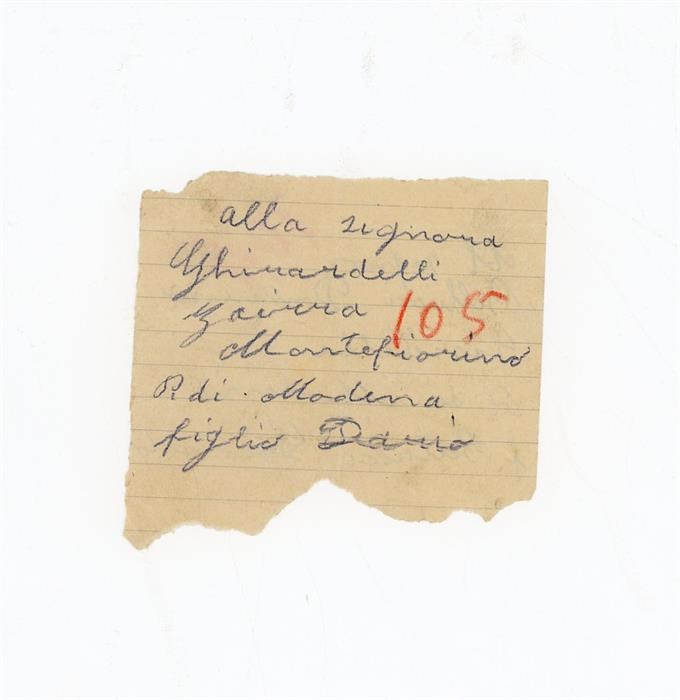 alla signora
Ghirardelli
Zairra 105
Montefiorino
P. di Modena
figlio Dario